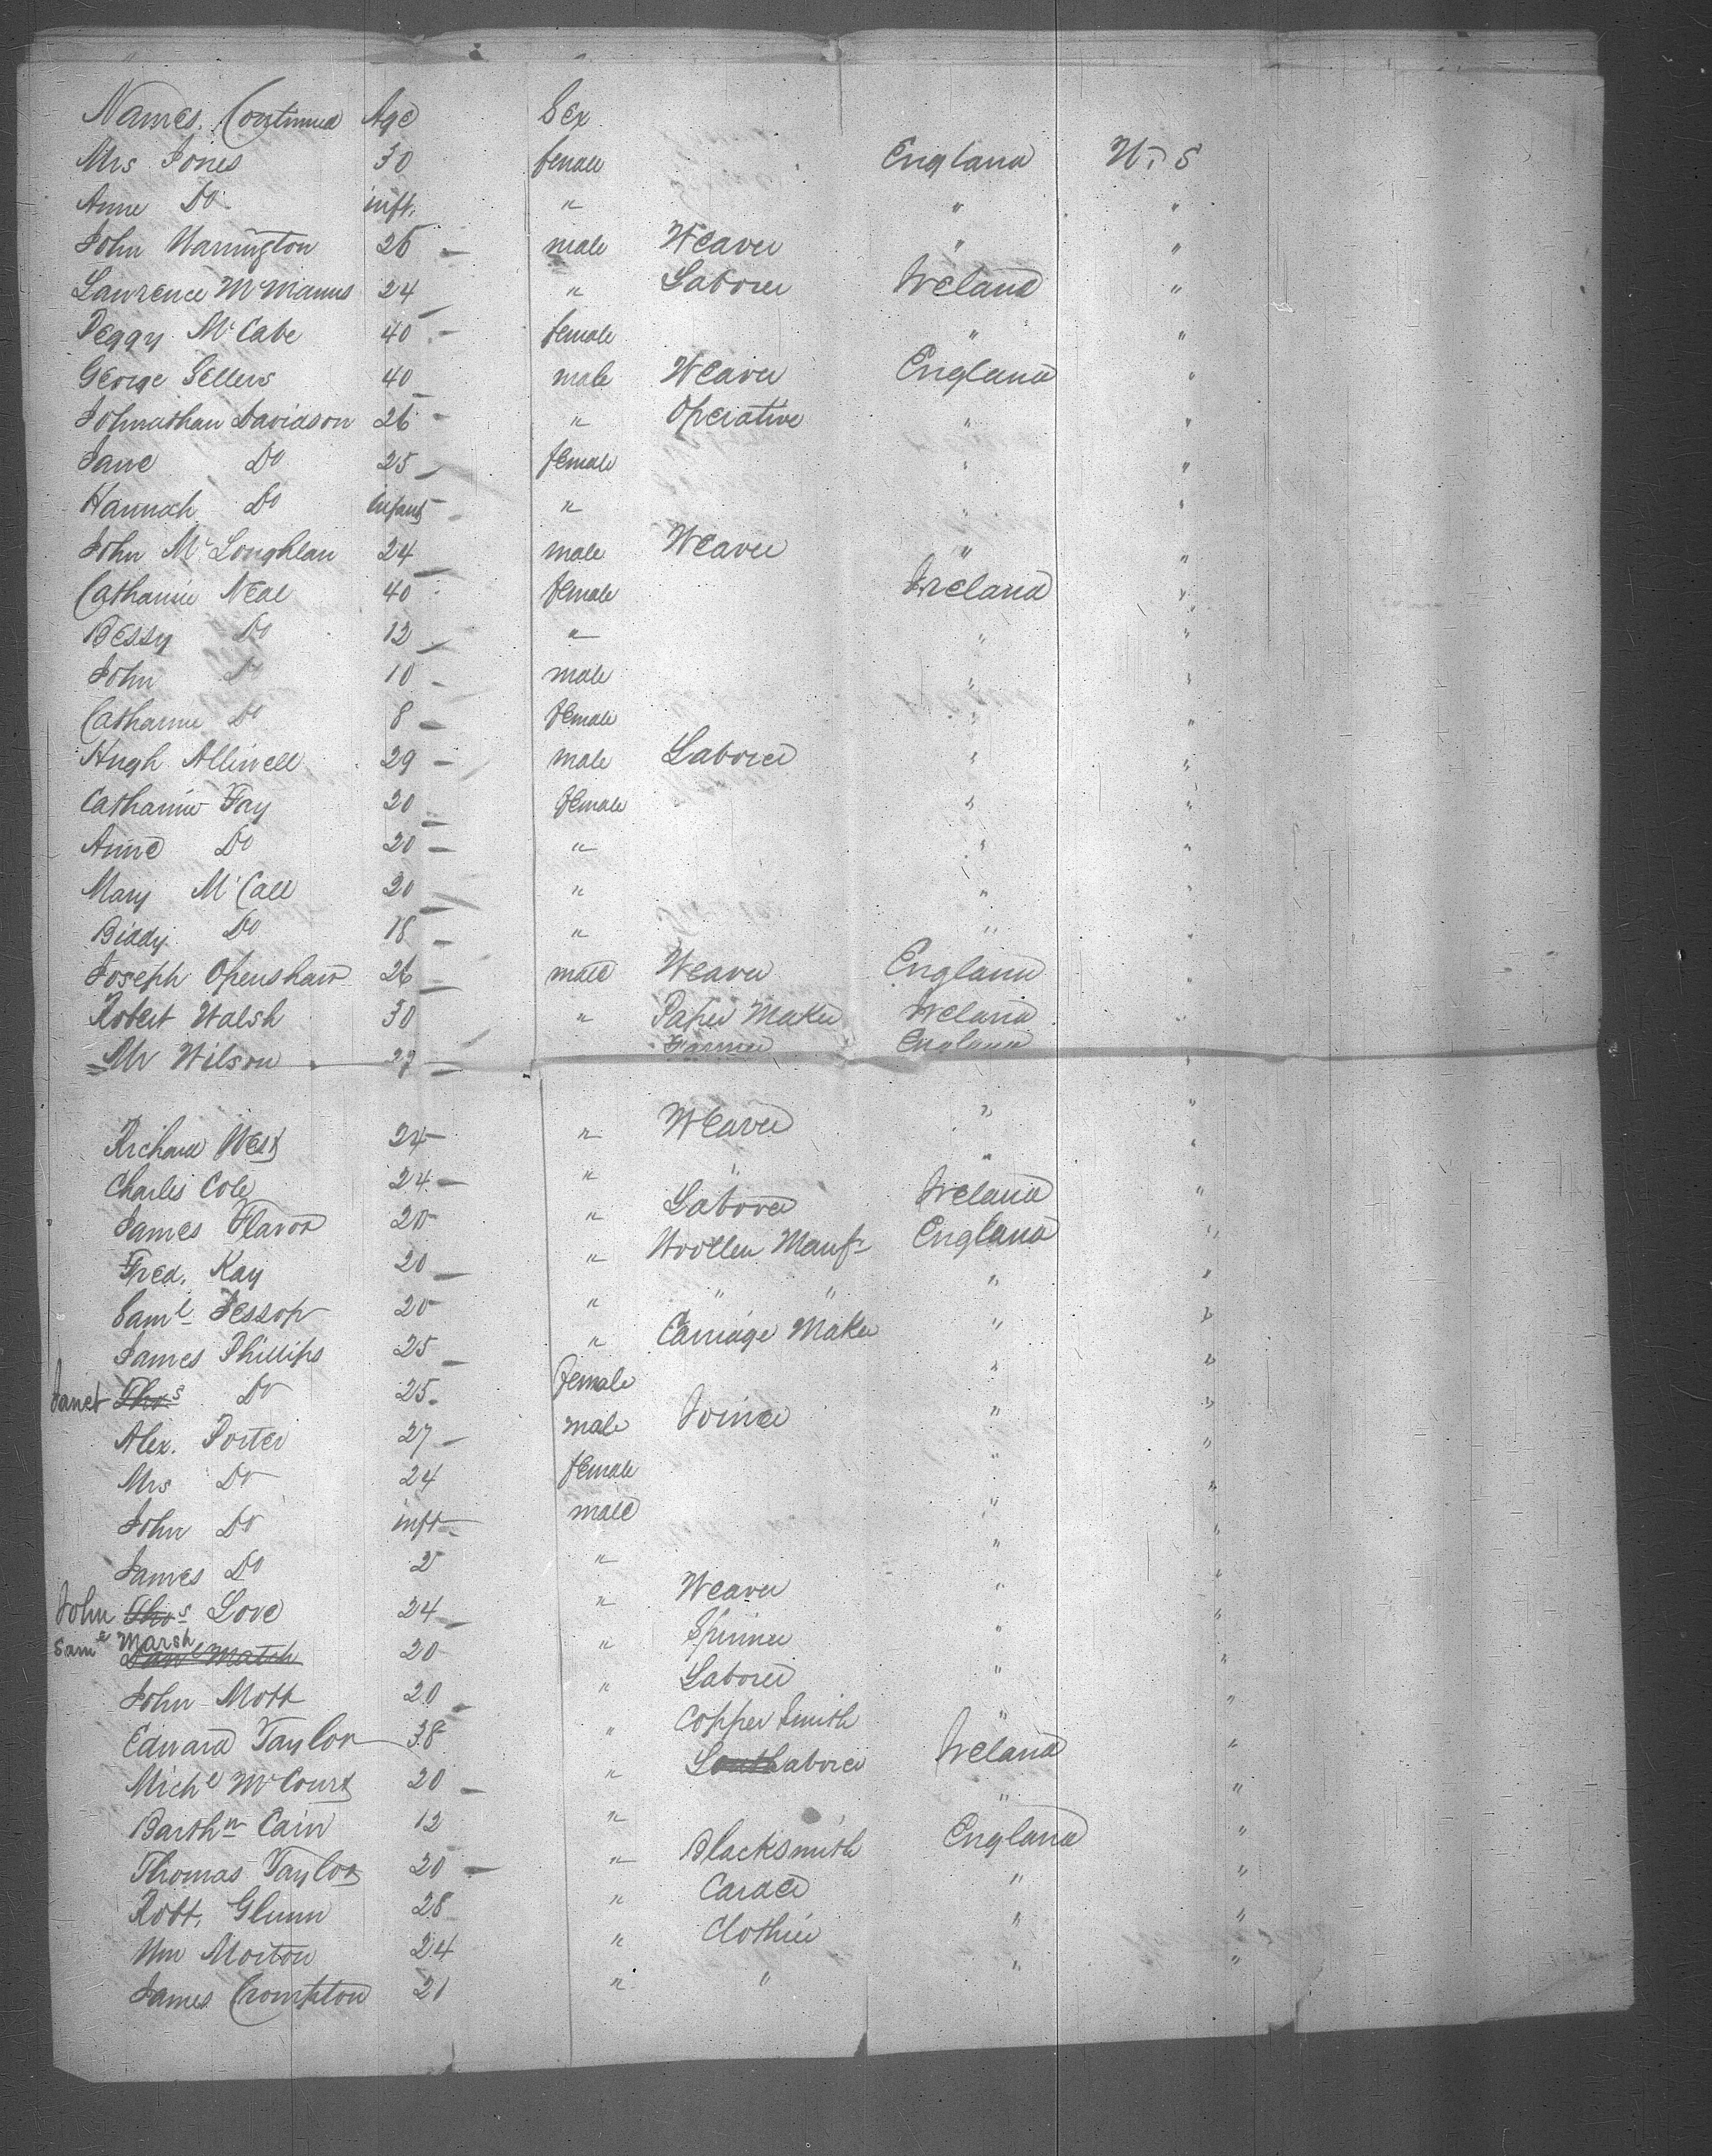 Names Continued Age Sex
Mrs Jones 30 female England U. S
Anne Do inft. " " "
John Warrington 26 male Weaver " "
Lawrence McManus 24 " Laborer Ireland "
Peggy McCabe 40 female " "
George Sellers 40 male Weaver England "
Johnathan Davidson 26 " Operative " "
Jane Do 25 female " "
Hannah Do infant " " "
John McLoughlan 24 male Weaver " "
Catharine Neal 40 female Ireland "
Bessy Do 12 " " "
John Do 10 male " "
Catharine Do 8 female " "
Hugh Alliwell 29 male Laborer " "
Catharine Fay 20 female " "
Anne Do 20 " " "
Mary McCall 20 " " "
Biddy Do 18 " " "
Joseph Openshaw 26 male Weaver England "
Robert Walsh 30 " Paper Maker Ireland "
Mr Wilson 27 Farmer England "
Richard West 24 " Weaver " "
Charles Cole 24 " " " "
James 20 " Laborer Ireland "
Fred. Kay 20 " Woollen Manfr England "
Saml Jessop 20 " " " " "
James Phillips 25 " Carriage Maker " "
Janet Thos Do 25 female " "
Alex. Porter 27 male Joiner " "
Mrs Do 24 female " "
John Do inft male " "
James Do 2 " " "
John Thos Love 24 " Weaver " "
Saml Marsh
Danl Match 20 " Spinner " "
John Mott 20 " Laborer " "
Edward Taylor 38 " Copper Smith " "
Michl McCourt 20 " Laborer Ireland "
Barthw Cain 12 " " "
Thomas Taylor 20 " Blacksmith England "
Robt. Glunn 28 " Carder " "
Wm Morton 24 " Clothier " "
James Crompton 21 " " " "